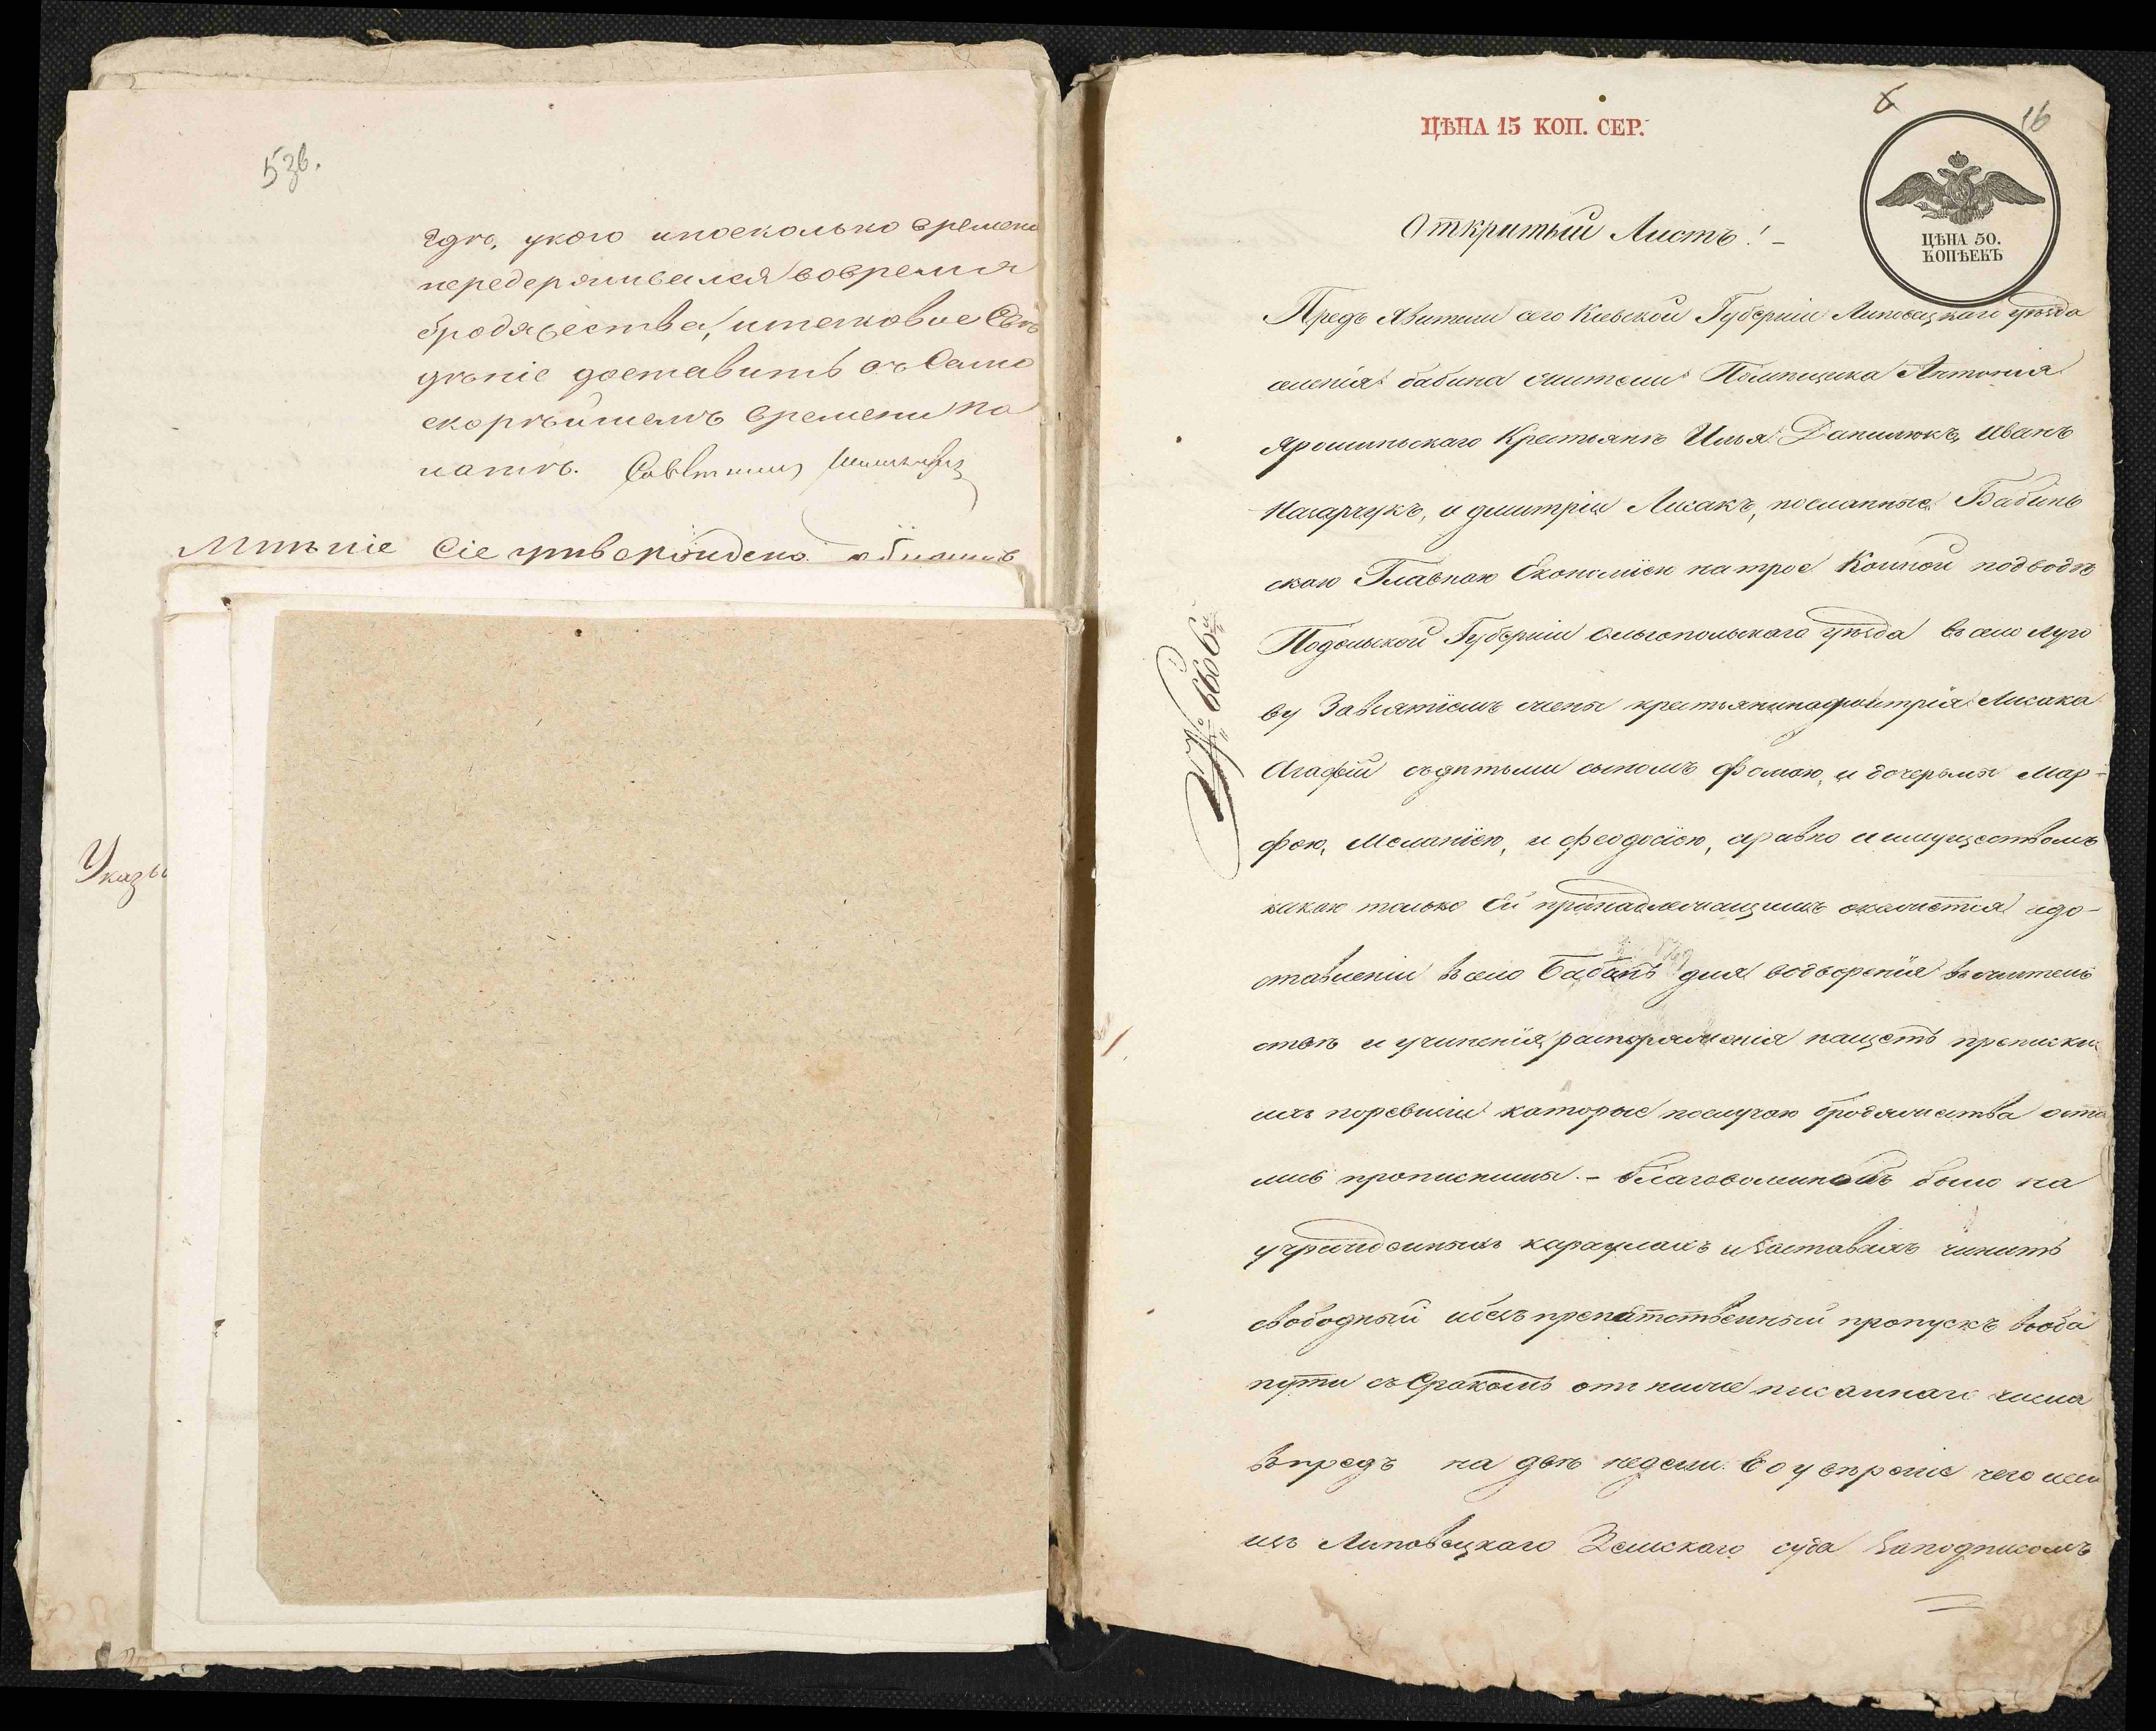 5зв.
гдѣ, укого инасколько времени
передерживался вовремя
бродяжества, итаковое Свѣ
дѣніе доставить въ Само
скорѣйшемъ времени
Совѣтникъ
Мнѣніе Сіе утверждено
Указ
ЦѢНА 15 КОП. СЕР.
6
16
ЦѢНА 50.
КОПѢЕКЪ
Открытый Листъ! -
Предъ Явители сего Кіевской Губерніи Липовецкаго уѣзда
селенія бабина жители Помѣщика Антонія
Ярошиньскаго Крестьяне Илья Данилюкъ, Иванъ
и дмитрій Лисакъ, посланные Бабинь
скою Главною Економіею натрое Конной подводѣ
Подольской Губерніи Ольгопольскаго уѣзда въ село Луго
ву Завзятіемъ жены крестьянинадмитрія Лисака
Агафіи съдѣтьми сыномъ фомою, и дочерьмы Мар-
фою, Меланіею, и феодосіею, аравно и имуществомъ
какое только Ей принадлежащимъ окажется идо-
ставленіи въ село Бабинъ для водворенія въжитель
ствѣ и учиненія распоряженія нащетъ приписки
ихъ поревизіи каторые послучаю бродяжества оста
лись прописными. - благоволенобъ было на
учрежденныхъ караулахъ иЗаставахъ чинить
свободный ибезъпрепятственный пропускъ вооба
пути съ Срокомъ отъ ниже писаннаго числа
впредъ на двѣ недели. Воувѣреніе чего
изъ Липовецкаго Земскаго суда Заподписомъ
№ 6666й